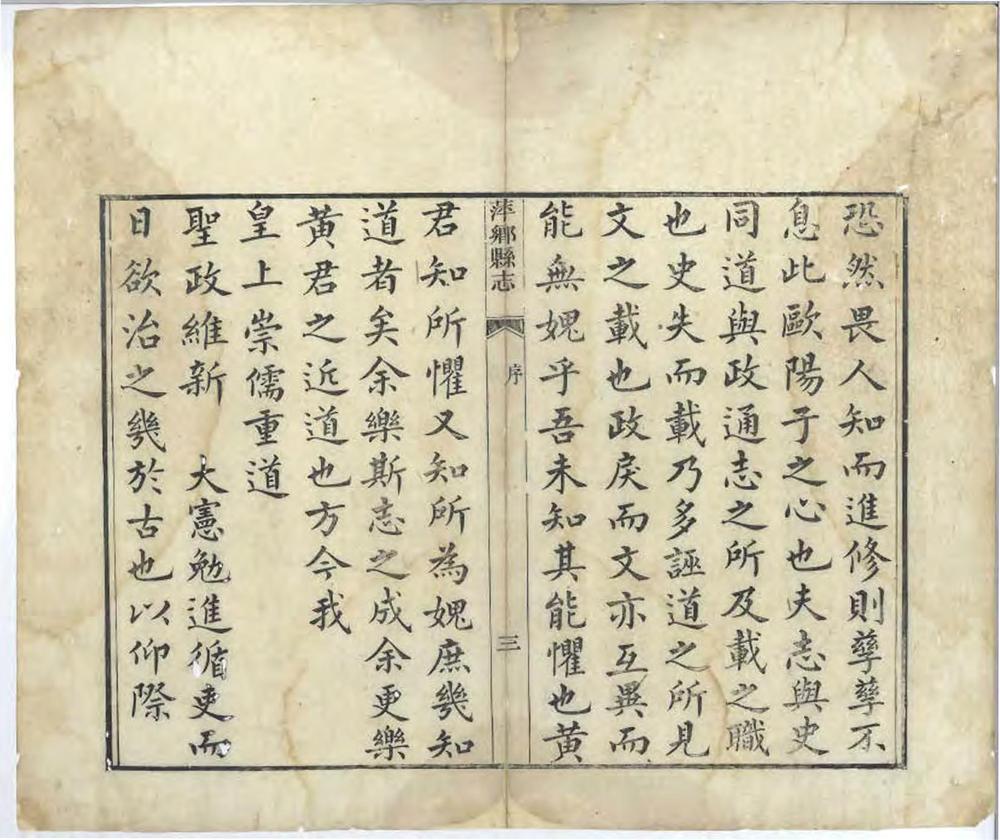 恐然畏人知而進修則孳孳不
息此歐陽子之心也夫志與史
同道與政通志之所及載之職
也史失而載乃多誣道之所見
文之載也政戾而文亦互異而
能無媿乎吾未知其能懼也黃
萍鄉縣志
序
三
君知所懼又知所為媿庶幾知
道者矣余樂斯志之成余更樂
黃君之近道也方今我
皇上崇儒重道
聖政維新 大憲勉進循吏而
日欲治之幾於古也以仰際